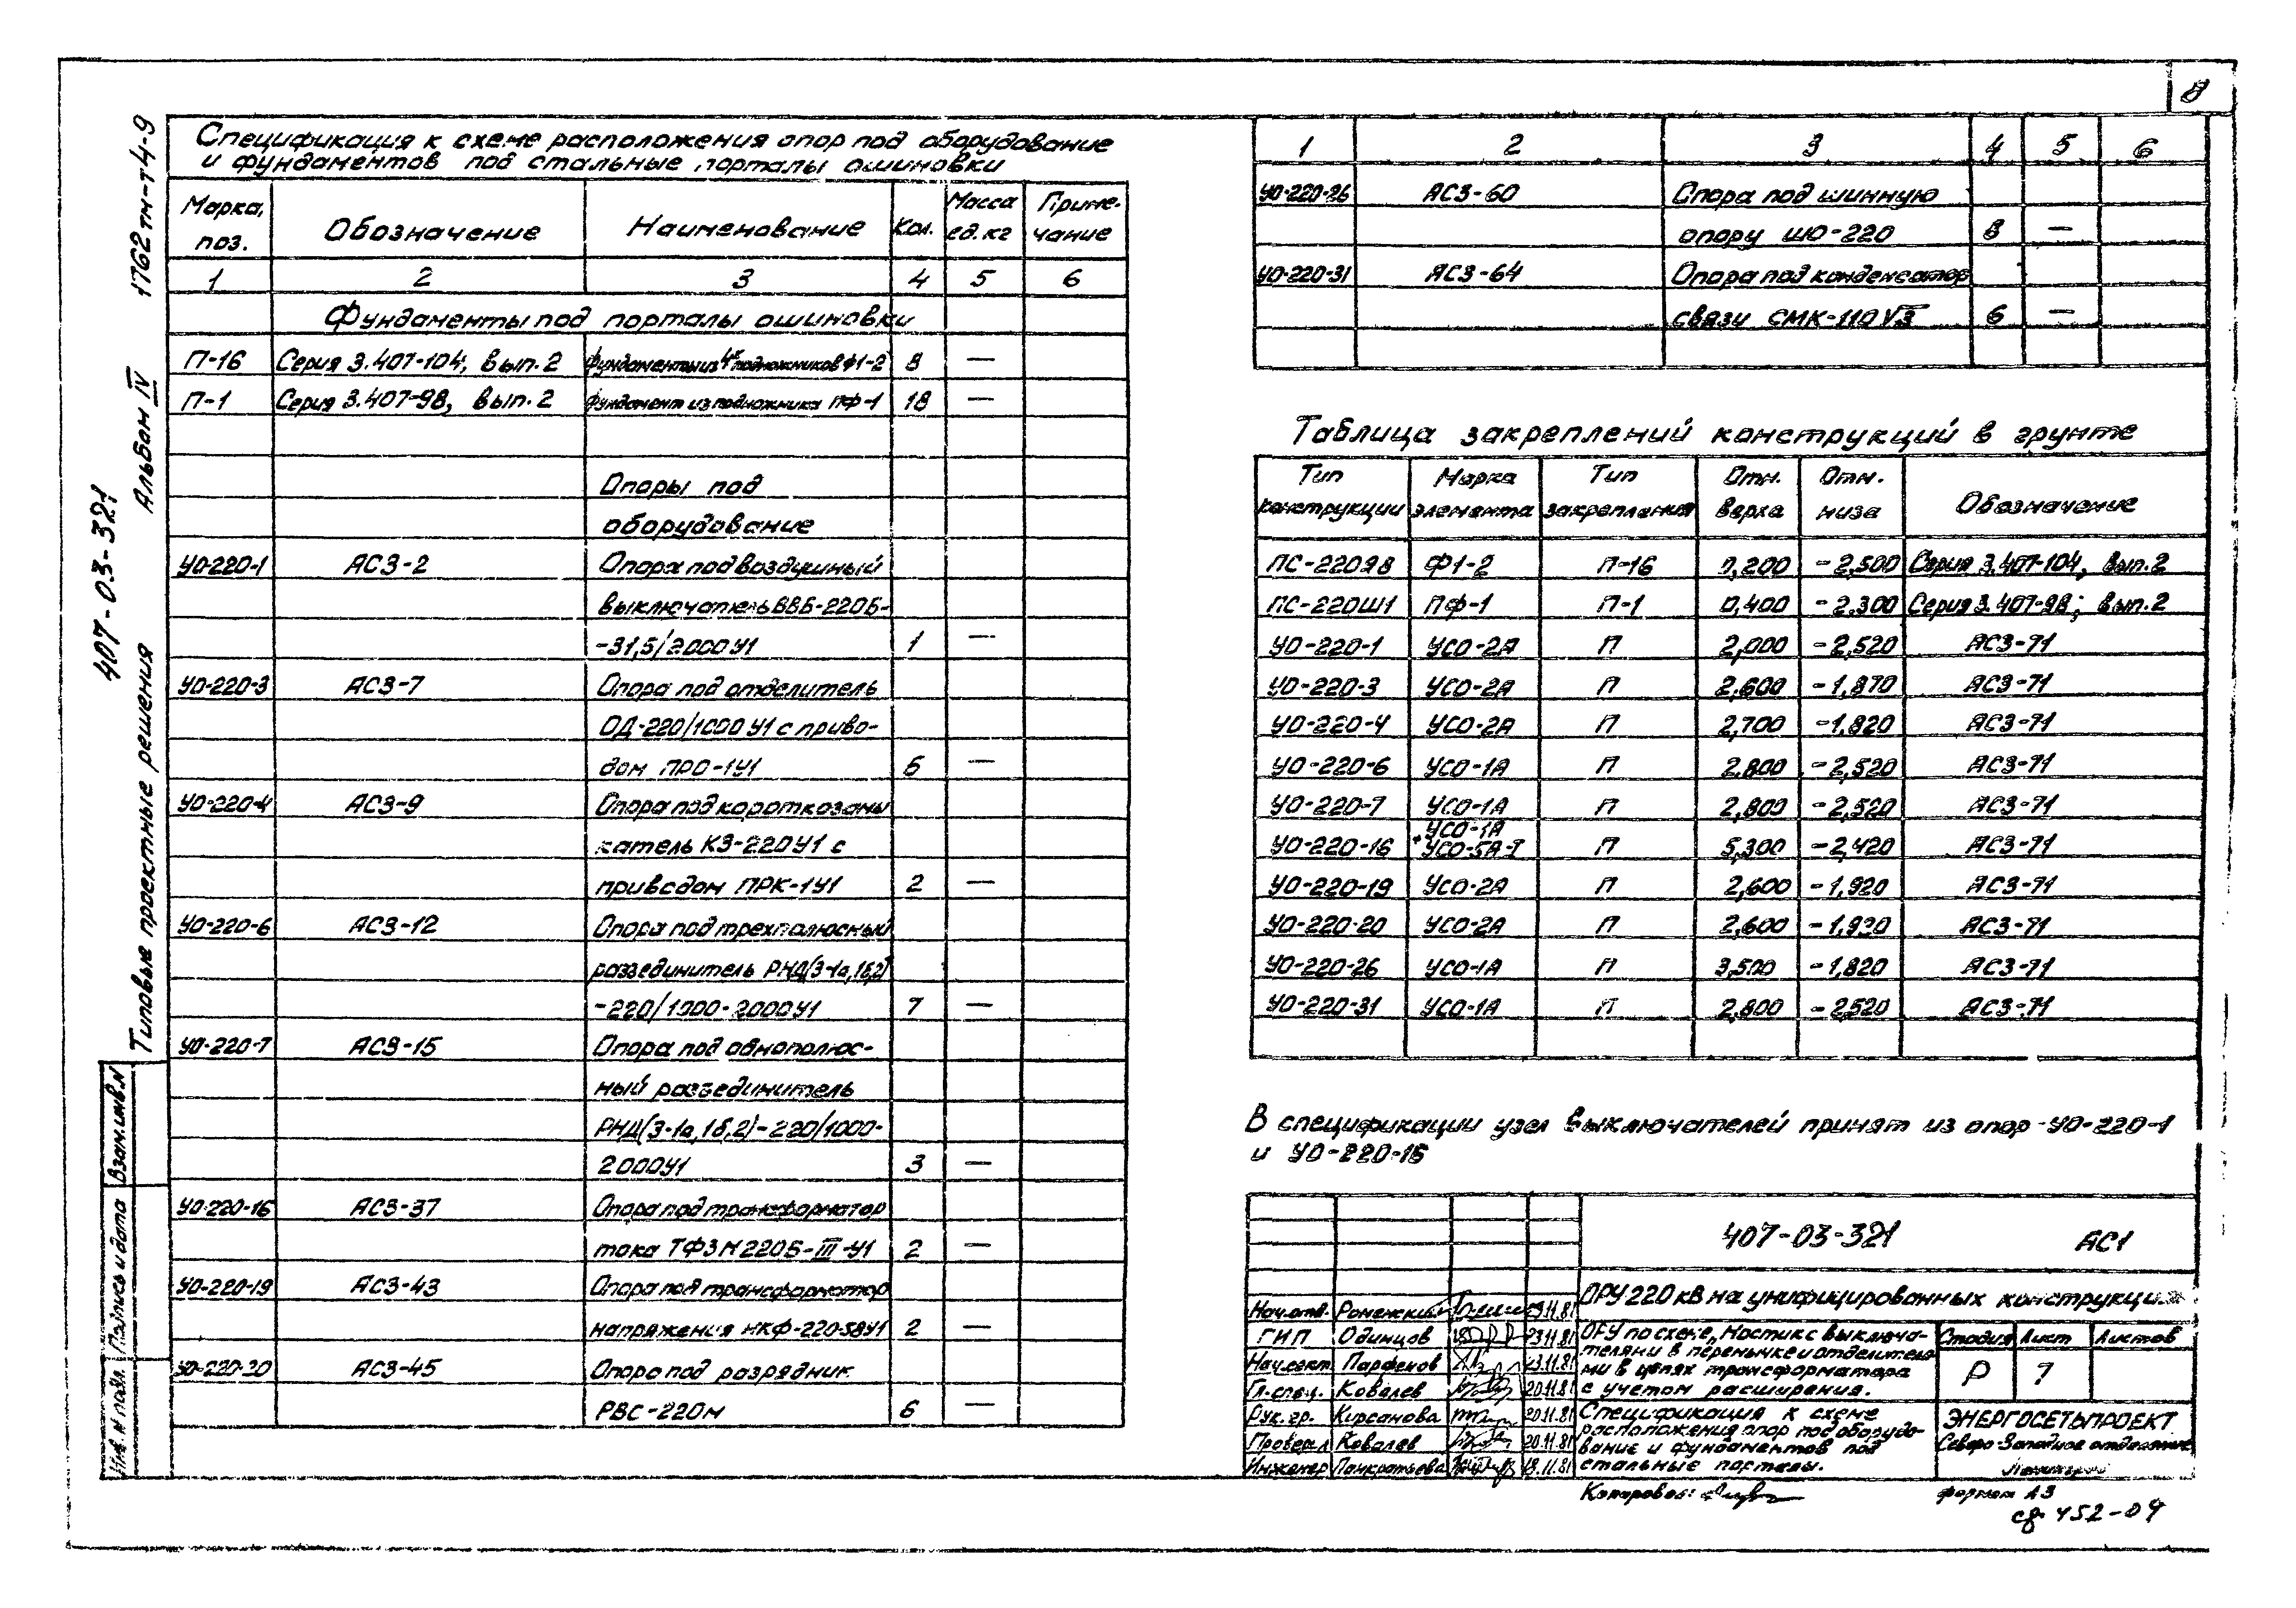 8
1762тм-т4-9
Альбом IV
407-03-321
Типовые проектные решения
Взам.инв.N
Подпись и дата
Инв. N подл.
Спецификация к схеме расположения опор под оборудование
и фундаментов под стальные порталы ошиновки
Марка, поз. Обозначение Наименование Кол. Масса ед. кг Приме-чание
1 2 3 4 5 6
Фундаменты под порталы ошиновки
П-16 Серия 3.407-104, вып. 2 Фундаменты из 4х подножников Ф1-2 8 —
П-1 Серия 3.407-98, вып. 2 Фундамент из подножника ПФ-1 18 —
Опоры под
оборудование
УО-220-1 АС3-2 Опора под воздушный
выключатель ВВБ-220Б-
-31,5/2000У1 1 —
УО-220-3 АС3-7 Опора под отделитель
ОД-220/1000 У1 с приво-
дом ПРО-1У1 6 —
УО-220-4 АС3-9 Опора под короткозамы
катель КЗ-220У1 с
приводом ПРК-1У1 2 —
УО-220-6 АС3-12 Опора под трехполюсный
разъединитель РНД(З-1а,1б,2)
-220/1000-2000У1 7 —
УО-220-7 АС3-15 Опора под однополюс-
ный разъединитель
РНД(З-1а,1б,2)-220/1000-
2000У1 3 —
УО-220-16 АС3-37 Опора под трансформатор
тока ТФЗМ220Б-III-У1 2 —
УО-220-19 АС3-43 Опора под трансформатор
напряжения НКФ-220-58У1 2 —
УО-220-20 АС3-45 Опора под разрядник
РВС-220м 6 —
1 2 3 4 5 6
УО-220-26 АС3-60 Опора под шинную
опору ШО-220 8 —
УО-220-31 АС3-64 Опора под конденсатор
связи СМК-110√3 6 —
Таблица закреплений конструкций в грунте
Тип конструкции Марка элемента Тип закрепления Отм. верха Отм. низа Обозначение
ПС-220Я8 Ф1-2 П-16 0,200 -2,500 Серия 3.407-104, вып. 2
ПС-220Ш1 ПФ-1 П-1 0,400 -2.300 Серия 3.407-98; вып. 2
УО-220-1 УСО-2А П 2,000 -2,520 АС3-71
УО-220-3 УСО-2А П 2,600 -1,870 АС3-71
УО-220-4 УСО-2А П 2,700 -1,820 АС3-71
УО-220-6 УСО-1А П 2,800 -2,520 АС3-71
УО-220-7 УСО-1А П 2,800 -2,520 АС3-71
УО-220-16 УСО-1А + УСО-5А-Т П 5,300 -2,420 АС3-71
УО-220-19 УСО-2А П 2,600 -1,920 АС3-71
УО-220-20 УСО-2А П 2,600 -1,920 АС3-71
УО-220-26 УСО-1А П 3,500 -1,820 АС3-71
УО-220-31 УСО-1А П 2,800 -2,520 АС3-71
В спецификации узел выключателей принят из опор УО-220-1
и УО-220-16
407-03-321 АС1
ОРУ 220 кВ на унифицированных конструкциях
Нач.отд. Роменский 19.11.81
ГИП Одинцов 23.11.81
Нач.сект. Парфенов 23.11.81
Гл.спец. Ковалев 20.11.81
Рук. гр. Кирсанова 20.11.81
Проверил Ковалев 20.11.81
Инженер Панкратьева 19.11.81
ОРУ по схеме „Мостик с выключа-
телями в перемычке и отделителя-
ми в цепях трансформатора
с учетом расширения.
Стадия Лист Листов
Р 7
Спецификация к схеме
расположения опор под оборудо-
вание и фундаментов под
стальные порталы.
ЭНЕРГОСЕТЬПРОЕКТ
Северо-Западное отделение
Ленинград
Копировал:
формат А3
сф 452-04